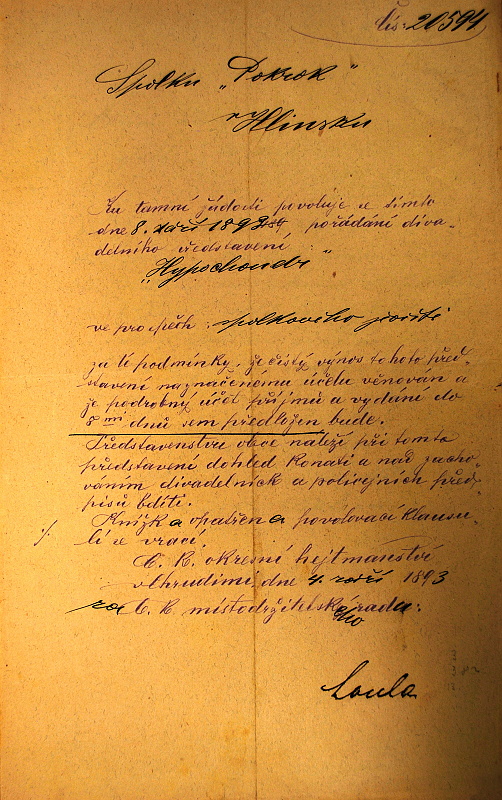 Čís: 20594
Spolku „Pokrok“
v Hlinsku
Ku tamní žádosti povoluje se tímto
dne 8. září 1893 pořádání diva-
delního představení:
„Hypochondr
ve prospěch: spolkového jmění
za té podmínky, že čistý výnos tohoto před-
stavení naznačenému účelu věnován a
že podrobný účet příjmů a vydání do
8 mi dnů sem předložen bude.
Představenstvu obce náleží při tomto
představení dohled konati a nad zacho-
váním divadelních a policejních před-
pisů bdíti.
Knížka opatřena povolovací klausu-
lí se vrací.
C. k. okresní hejtmanství
v Chrudimi, dne 4. září 1893
za C. k. místodržitelského radu:
Loula